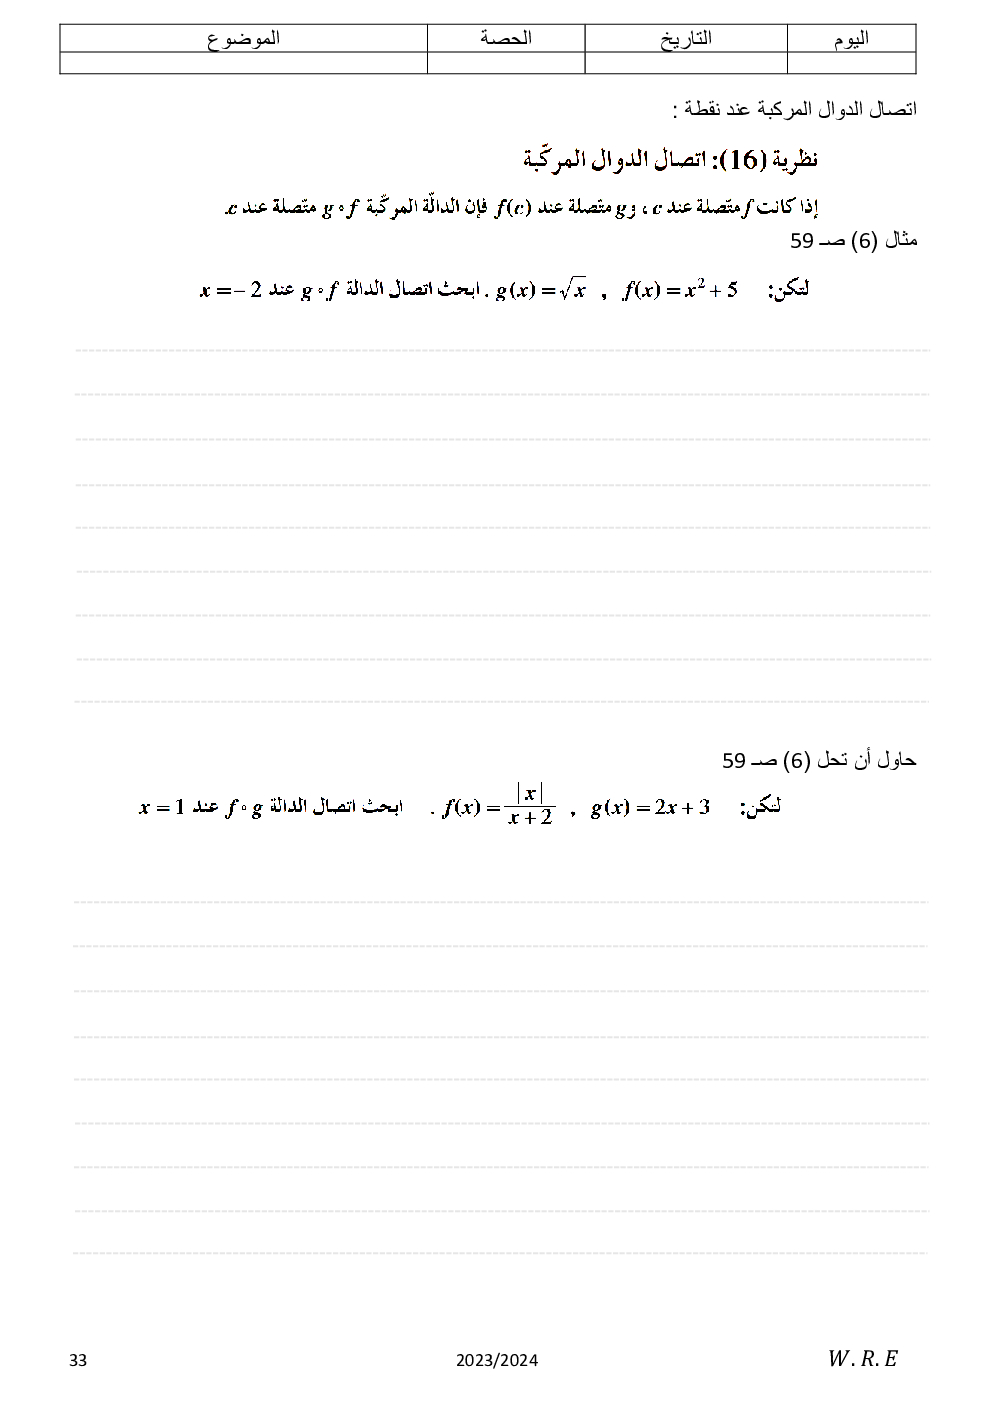 اليوم التاريخ الحصة الموضوع
اتصال الدوال المركبة عند نقطة :
نظرية (16): اتصال الدوال المركّبة
إذا كانت f متّصلة عند c ، وg متّصلة عند f(c) فإن الدالّة المركّبة g∘f متّصلة عند c.
مثال (6) صـ 59
لتكن: f(x) = x² + 5 , g(x) = √x . ابحث اتصال الدالة g∘f عند x = – 2
حاول أن تحل (6) صـ 59
لتكن: g(x) = 2x + 3 , f(x) = |x| / (x + 2) . ابحث اتصال الدالة f∘g عند x = 1
33 2023/2024 W.R.E